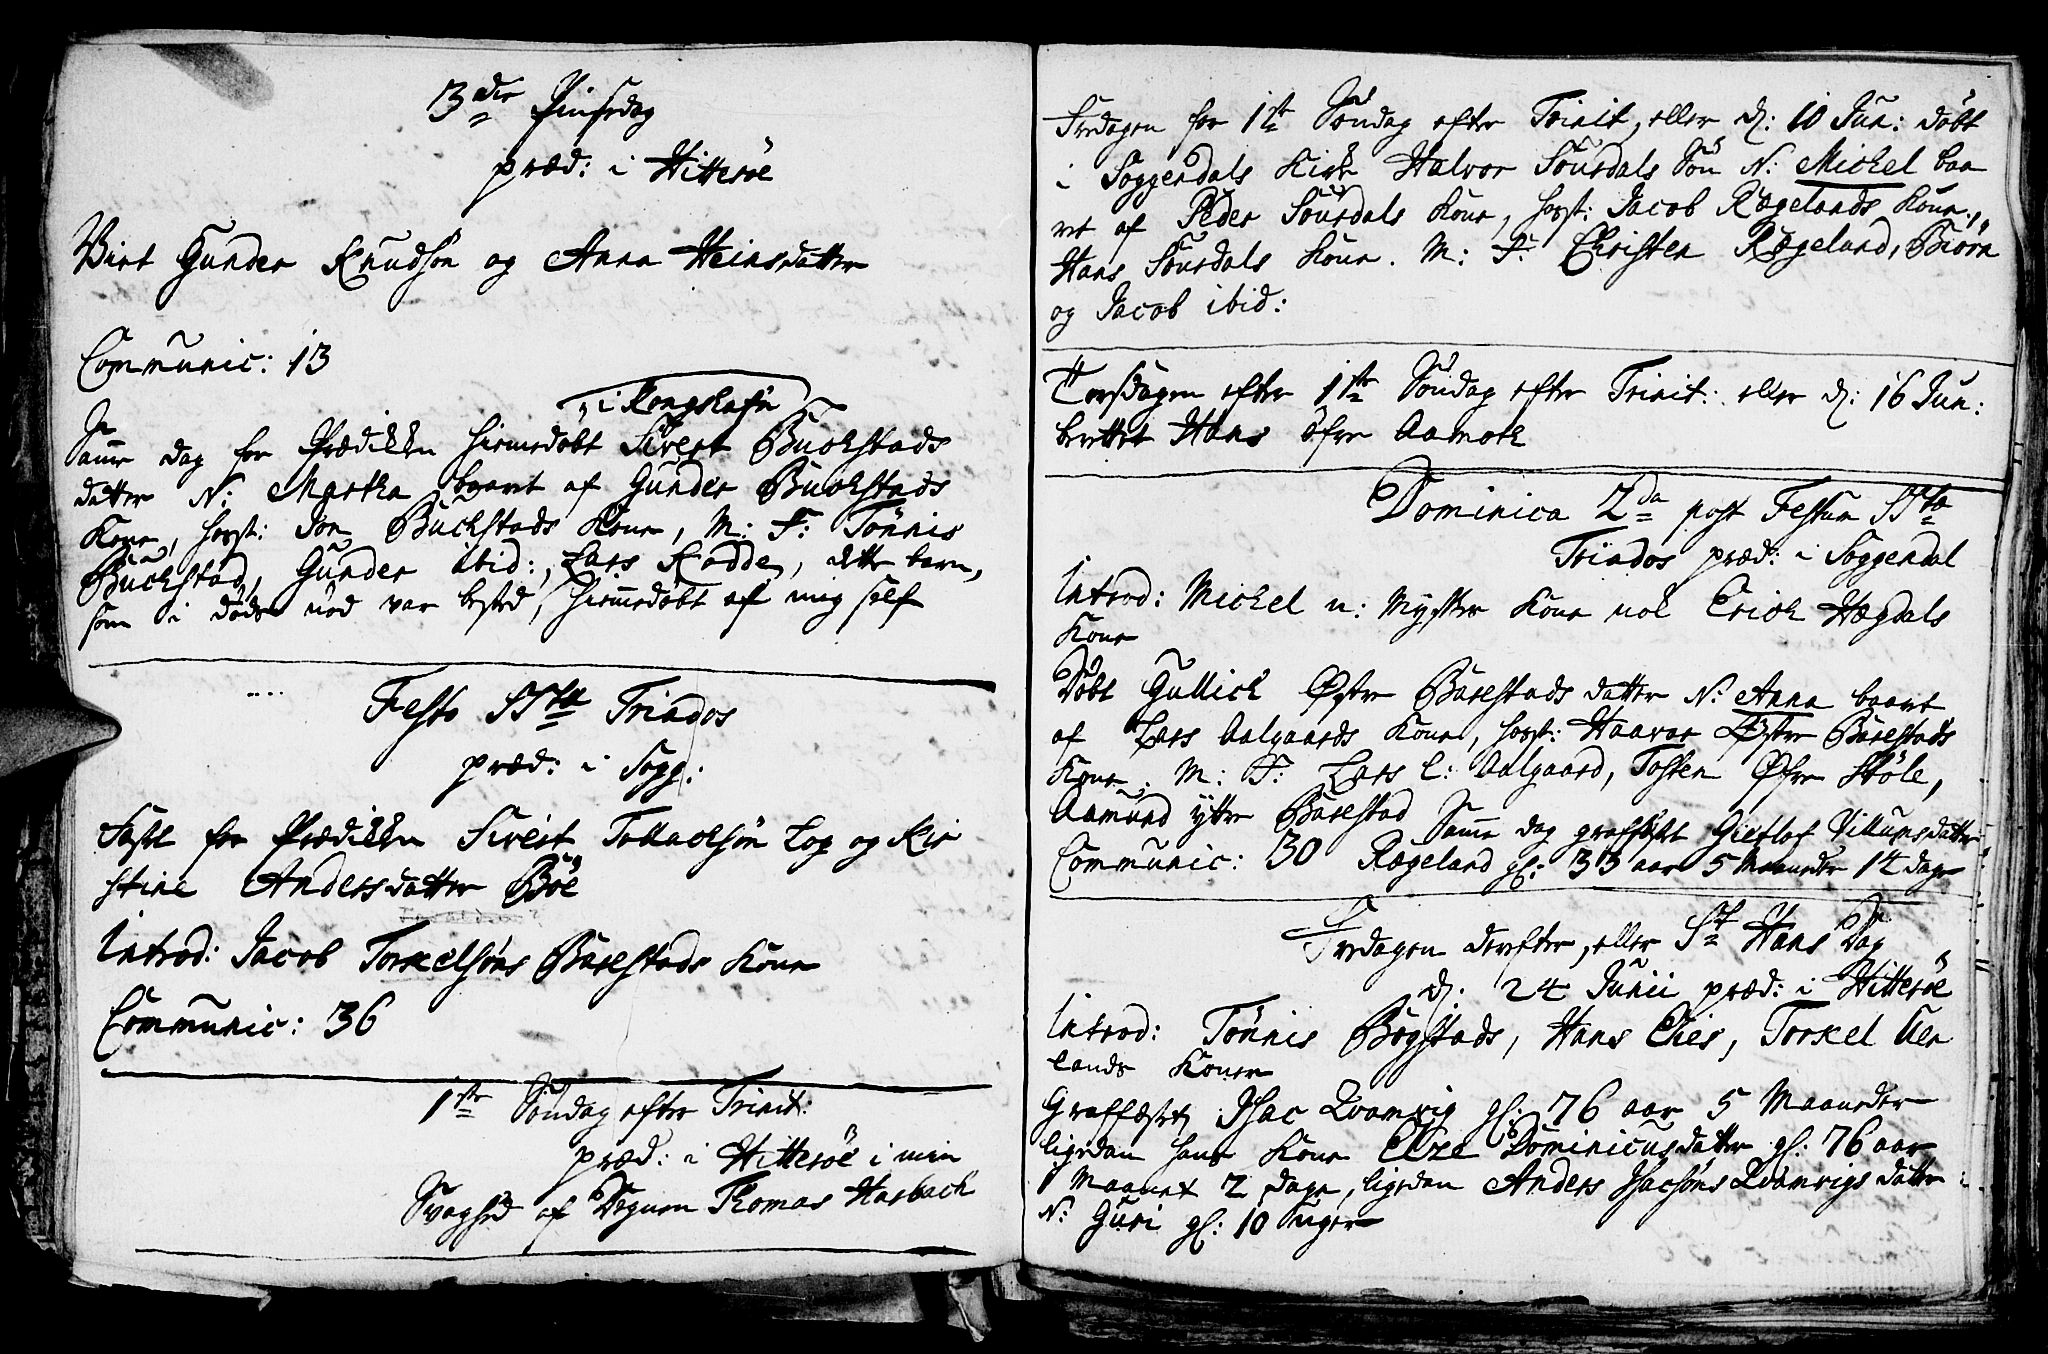 3die Pinsedag
præd: i Hitterøe
Viet Gunder Knudsøn og Anna Heinsdatter
Communic: 13
i Rongshafn
Samme dag for Prædikken hiemedøbt Sivert Buchstads
datter N: Martha baaret af Gunder Buchstads
Kone, hoest: Jon Buchstads Kone, M: F: Tönnis
Buchstad, Gunder ibid:, Lars Rodde, dette barn,
som i døds nød var bested, hiemedøbt af mig self
Festo SSta Triados
præd: i Sogg:
Fæst for Prædikken Sivert Tollachsøn Log og Kir
stine Andersdatter Böe
Introd: Jacob Torkelsøns Bakestads Kone
Communic: 36
1ste Søndag efter Trinit:
præd: i Hitterøe i min
Svaghed af Degnen Thomas Hasbach
Fredagen for 1ste Søndag efter Trinit, eller d: 10 Jun: døbt
i Soggendals Kirke Halvor Sursdals Søn N: Michel baa
ret af Peder Sursdals Kone, hoest: Jacob Rægelands Kone,
Hans Sursdals Kone. M: F: Christen Rægeland, Biörn
og Jacob ibid:
Torsdagen efter 1ste Søndag efter Trinit: eller d: 16 Jun:
berettet Hans öfre Aamoth
Dominica 2da post Festum SSta
Triados præd: i Soggendal
Introd: Michel n: Mysse Kone nok Erich Hægdals
Kone
Døbt Gullich Østre Bakestads datter N: Anna baaret
af Lars Aalgaards Kone, hoest: Haavar Østre Bakestads
Kone, M: F: Lars l: Aalgaard, Tosten Øfre Støle,
Aamund ytre Bakestad Samme dag graffæstet Giertlof Villumsdatter
Communic: 30 Rægeland gl: 33 aar 5 Maaneder 14 dage
Fredagen derefter, eller St Hans Dag
d: 24 Junii præd: i Hitterøe
Introd: Tönnis Bogstads, Hans Eies, Torkel Uer
lands Koner
Graffæstet Isac Qvamvig gl: 76 aar 5 Maaneder
ligedan hans Kone Elze Dominicusdatter gl: 76 aar
1 Maanet 2 dage, ligedan Anders Isacsøns Qvamvigs datter
N: Guri gl: 10 Uger